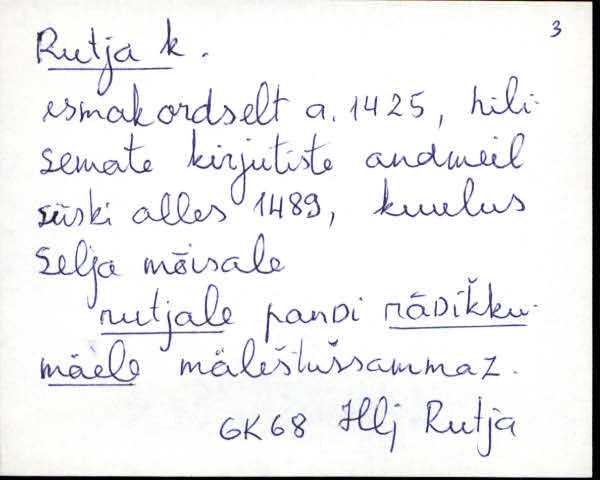 3
Rutja k.
esmakordselt a. 1425, hili-
semate kirjutiste andmeil
siiski alles 1489, kuulus
Selja mõisale
rutjale panDi rāDīkku-
mäele mälestussammaz.
GK68 Hlj Rutja